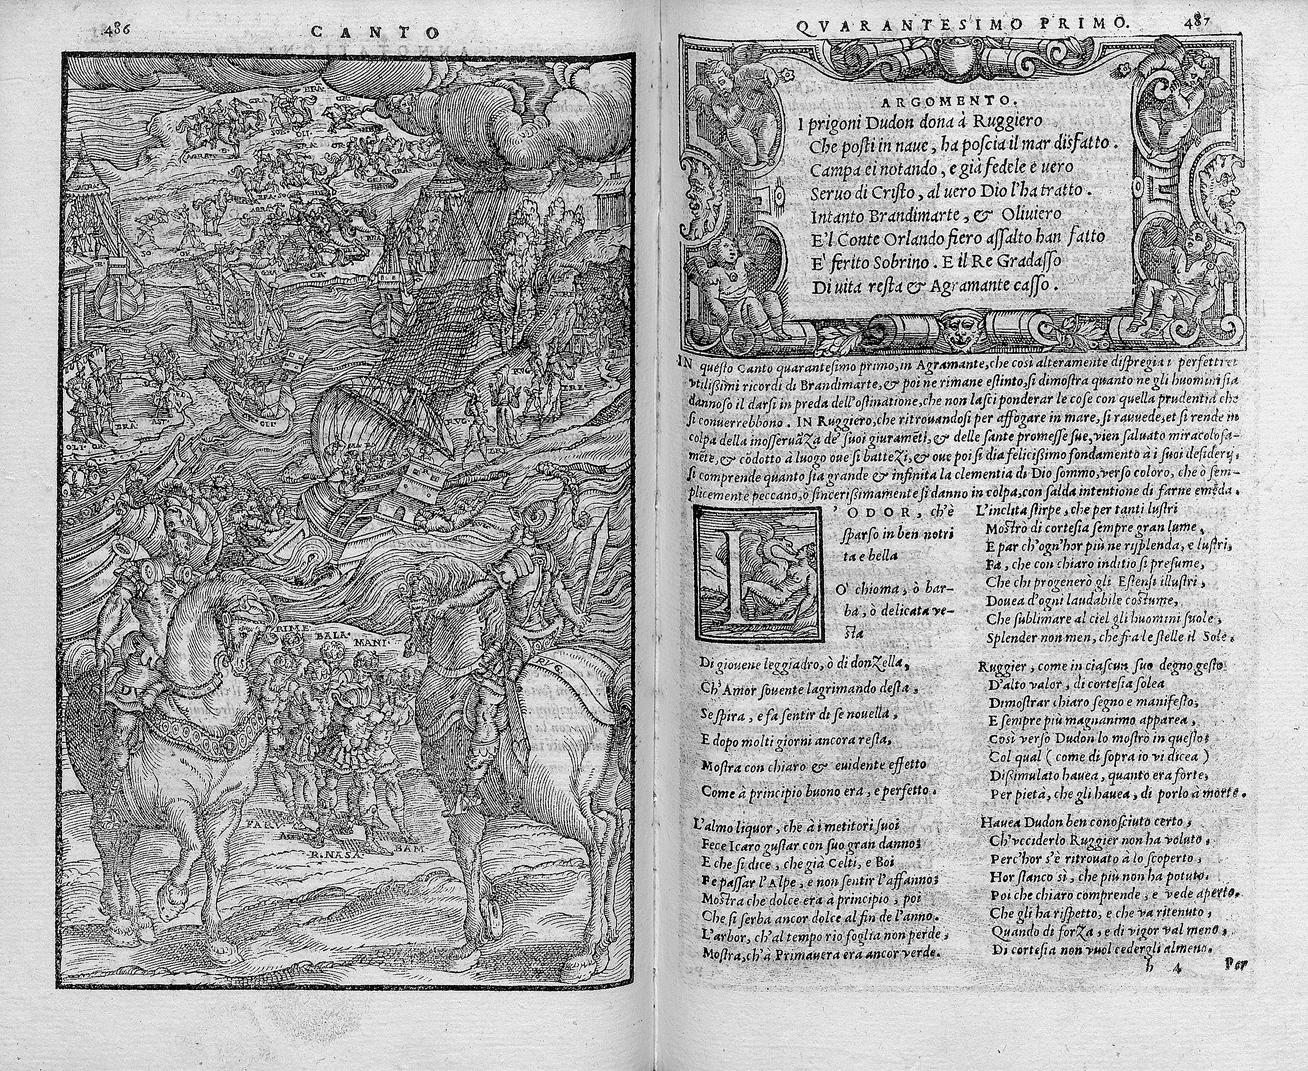 486
CANTO
GRA.
BRA.
OLI.
SO
OV.
GRA
CA
BRA.
AST.
OLI OR
OLI
RVG
ERE
RVG
ERE
RIME.
BALA.
MANI.
RVG
FARV.
R. NASA.
BAM.
QVARANTESIMO PRIMO.
487
ARGOMENTO.
I prigoni Dudon dona à Ruggiero
Che posti in naue, ha poscia il mar disfatto.
Campa ei notando, e già fedele e uero
Seruo di Cristo, al uero Dio l'ha tratto.
Intanto Brandimarte, & Oliuiero
E'l Conte Orlando fiero assalto han fatto
E' ferito Sobrino. E il Re Gradasso
Di uita resta & Agramante casso.
IN questo Canto quarantesimo primo, in Agramante, che così alteramente dispregia i perfetti et
vtilissimi ricordi di Brandimarte, & poi ne rimane estinto, si dimostra quanto ne gli huomini sia
dannoso il darsi in preda dell'ostinatione, che non lasci ponderar le cose con quella prudentia che
si conuerrebbono. IN Ruggiero, che ritrouandosi per affogare in mare, si rauuede, et si rende in
colpa della inosseruãZa de' suoi giuramẽti, & delle sante promesse sue, vien saluato miracolosa-
mẽte, & cõdotto à luogo oue si batteZi, & oue poi si dia felicissimo fondamento à i suoi desiderij,
si comprende quanto sia grande & infinita la clementia di Dio sommo, verso coloro, che ò sem-
plicemente peccano, ò sincerissimamente si danno in colpa, con salda intentione di farne emẽda.
L'ODOR, ch'è
sparso in ben notri
ta e bella
O' chioma, ò bar-
ba, ò delicata ve-
sta
Di giouene leggiadro, ò di donZella,
Ch'Amor souente lagrimando desta,
Se spira, e fa sentir di se nouella,
E dopo molti giorni ancora resta,
Mostra con chiaro & euidente effetto
Come à principio buono era, e perfetto.
L'almo liquor, che à i metitori suoi
Fece Icaro gustar con suo gran danno;
E che si dice, che già Celti, e Boi
Fe passar l'Alpe, e non sentir l'affanno;
Mostra che dolce era à principio, poi
Che si serba ancor dolce al fin de l'anno.
L'arbor, ch'al tempo rio foglia non perde,
Mostra, ch'à Primauera era ancor verde.
L'inclita stirpe, che per tanti lustri
Mostrò di cortesia sempre gran lume,
E par ch'ogn'hor più ne risplenda, e lustri,
Fa, che con chiaro inditio si presume,
Che chi progenerò gli Estensi illustri,
Douea d'ogni laudabile costume,
Che sublimare al ciel gli huomini suole,
Splender non men, che fra le stelle il Sole.
Ruggier, come in ciascun suo degno gesto
D'alto valor, di cortesia solea
Dimostrar chiaro segno e manifesto,
E sempre più magnanimo apparea,
Così verso Dudon lo mostrò in questo;
Col qual (come di sopra io vi dicea)
Dissimulato hauea, quanto era forte,
Per pietà, che gli hauea, di porlo à morte.
Hauea Dudon ben conosciuto certo,
Ch'vcciderlo Ruggier non ha voluto,
Perc'hor s'è ritrouato à lo scoperto,
Hor stanco sì, che più non ha potuto.
Poi che chiaro comprende, e vede aperto.
Che gli ha rispetto, e che va ritenuto,
Quando di forZa, e di vigor val meno,
Di cortesia non vuol cedergli almeno.
h 4
Per